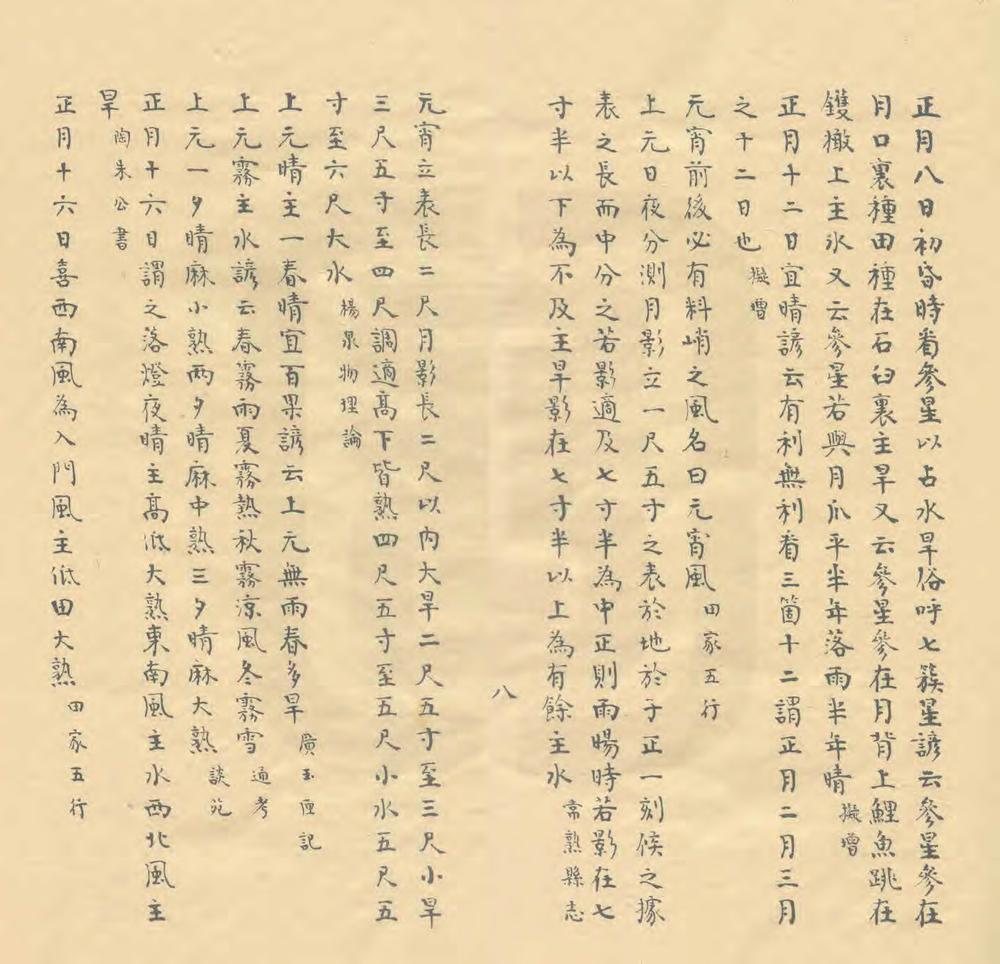 正月八日初昏時看參星以占水旱俗呼七簇星諺云參星參在
月口裏種田種在石臼裏主旱又云參星參在月背上鯉魚跳在
鑊橵上主水又云參星若與月爪平半年落雨半年晴擬增
正月十二日宜晴諺云有利無利看三箇十二謂正月二月三月
之十二日也擬增
元宵前後必有料峭之風名曰元宵風田家五行
上元日夜分測月影立一尺五寸之表於地於子正一刻候之據
表之長而中分之若影適及七寸半為中正則雨暘時若影在七
寸半以下為不及主旱影在七寸半以上為有餘主水常熟縣志
八
元宵立表長二尺月影長二尺以內大旱二尺五寸至三尺小旱
三尺五寸至四尺調適高下皆熟四尺五寸至五尺小水五尺五
寸至六尺大水楊泉物理論
上元晴主一春晴宜百果諺云上元無雨春多旱廣玉匣記
上元霧主水諺云春霧雨夏霧熱秋霧涼風冬霧雪通考
上元一夕晴麻小熟兩夕晴麻中熟三夕晴麻大熟談苑
正月十六日謂之落燈夜晴主高低大熟東南風主水西北風主
旱陶朱公書
正月十六日喜西南風為入門風主低田大熟田家五行